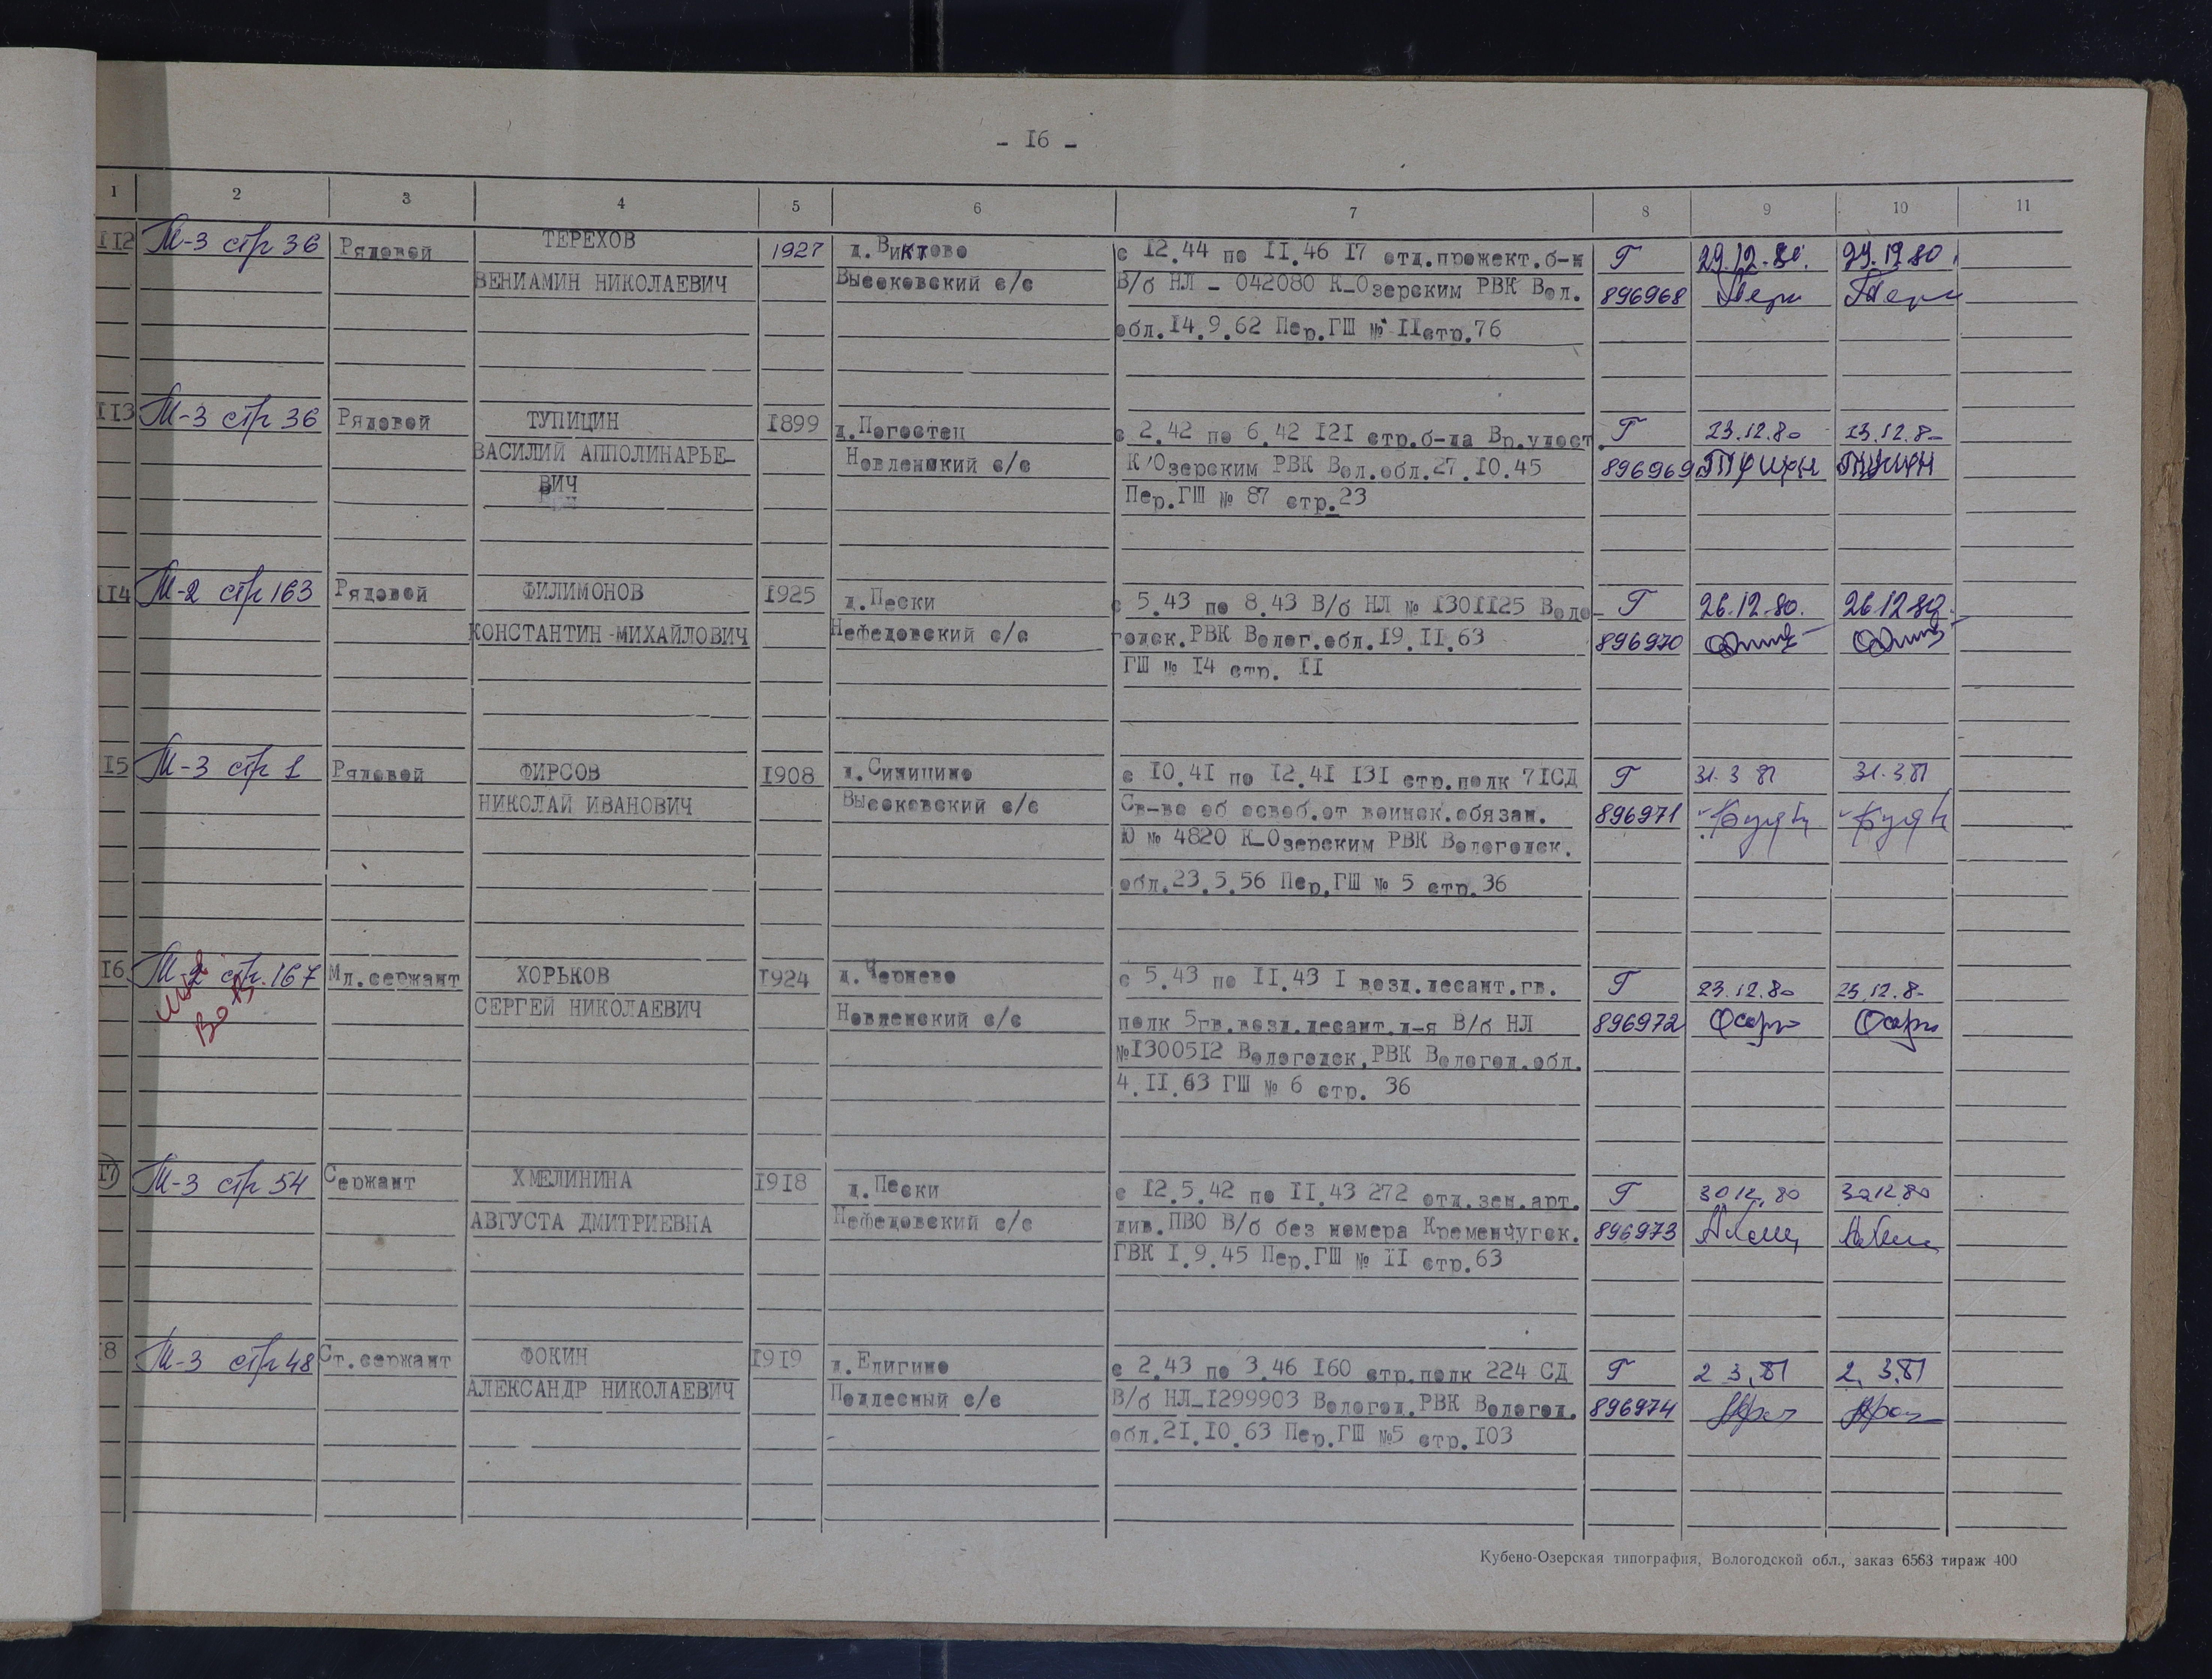 - I6 -
1 2 3 4 5 6 7 8 9 10 11
II2 М-3 стр 36 Рядовой ТЕРЕХОВ 1927 д.Виктово с I2.44 по II.46 I7 отд.прожект.б-н Г 29.12.80. 29.12.80.
ВЕНИАМИН НИКОЛАЕВИЧ Высоковский с/с В/б НЛ - 042080 К-Озерским РВК Вол. 896968
обл.I4.9.62 Пер.ГШ № IIстр.76
II3 М-3 стр 36 Рядовой ТУПИЦИН I899 д.Погостец с 2.42 по 6.42 I2I стр.б-да Вр.удост. Г 23.12.80 23.12.80
ВАСИЛИЙ АППОЛИНАРЬЕ- Новленский с/с К'Озерским РВК Вол.обл.27.I0.45 896969
ВИЧ Пер.ГШ № 87 стр.23
II4 М-2 стр 163 Рядовой ФИЛИМОНОВ I925 д.Пески с 5.43 по 8.43 В/б НЛ № I30II25 Воло- Г 26.12.80. 26.12.80.
КОНСТАНТИН МИХАЙЛОВИЧ Нефедовский с/с годск.РВК Волог.обл.I9.II.63 896970
ГШ № I4 стр. II
I5 М-3 стр 1 Рядовой ФИРСОВ I908 д.Синицино с I0.4I по I2.4I I3I стр.полк 7IСД Г 31.3 81 31.3.81
НИКОЛАЙ ИВАНОВИЧ Высоковский с/с Св-во об освоб.от воинск.обязан. 896971
Ю № 4820 К-Озерским РВК Вологодск.
обл.23.5.56 Пер.ГШ № 5 стр.36
I6 М-2 стр.167 Мл.сержант ХОРЬКОВ I924 д.Чернево с 5.43 по II.43 I возд.десант.гв. Г 23.12.80 23.12.80
ВоВ СЕРГЕЙ НИКОЛАЕВИЧ Новленский с/с полк 5гв.возд.десант.д-я В/б НЛ 896972
№I3005I2 Вологодск.РВК Вологод.обл.
4.II.63 ГШ № 6 стр. 36
I7 М-3 стр 54 Сержант ХМЕЛИНИНА I9I8 д.Пески с I2.5.42 по II.43 272 отд.зен.арт. Г 30 12.80 30 12.80
АВГУСТА ДМИТРИЕВНА Нефедовский с/с див.ПВО В/б без номера Кременчугск. 896973
ГВК I.9.45 Пер.ГШ № II стр.63
8 М-3 стр 48 Ст.сержант ФОКИН I9I9 д.Елигино с 2.43 по 3.46 I60 стр.полк 224 СД Г 2 3.81 2. 3.81
АЛЕКСАНДР НИКОЛАЕВИЧ Подлесный с/с В/б НЛ-I299903 Вологод.РВК Вологод. 896974
обл.2I.I0.63 Пер.ГШ №5 стр.I03
Кубено-Озерская типография, Вологодской обл., заказ 6563 тираж 400